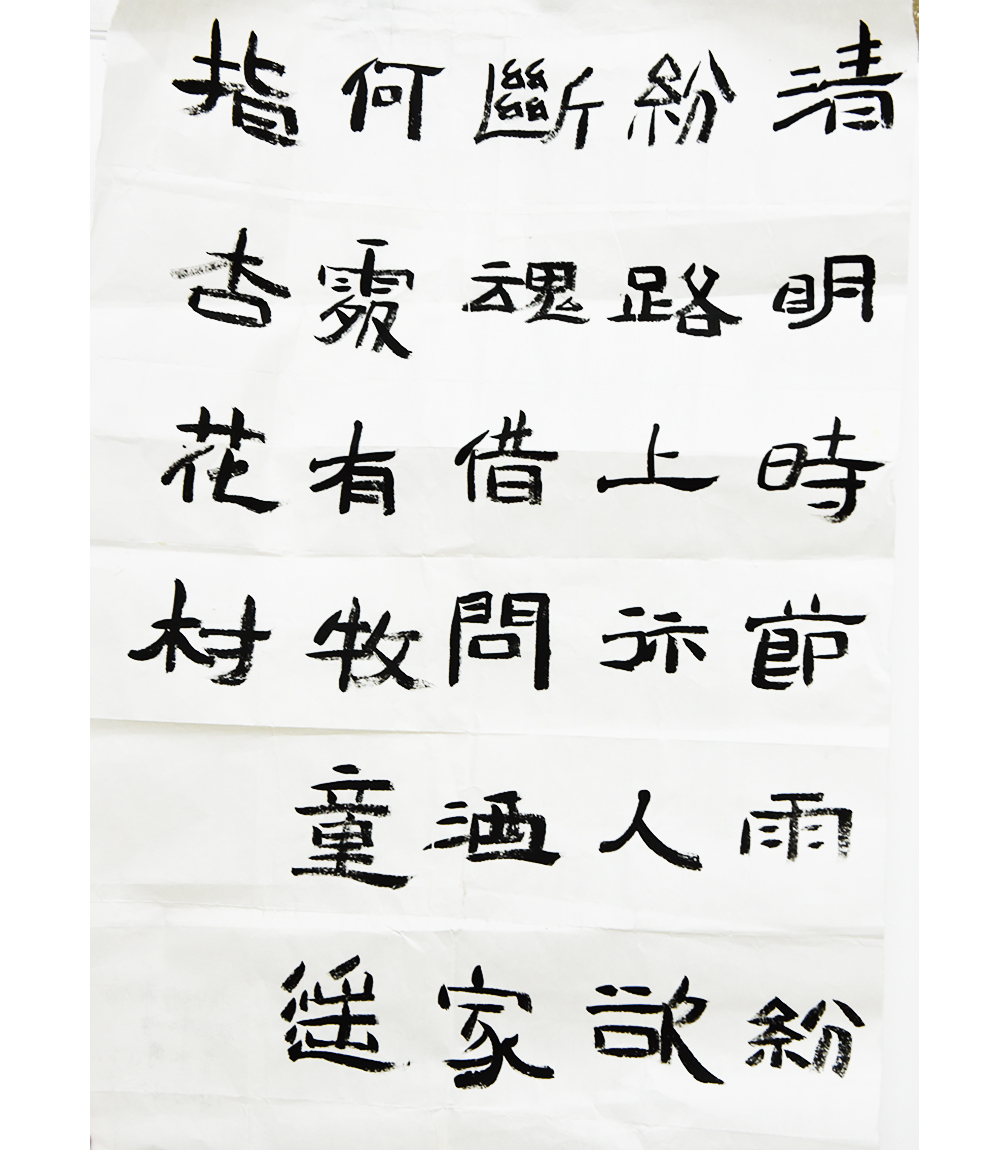 清明時節雨紛
紛路上行人欲
斷魂借問酒家
何處有牧童遙
指杏花村